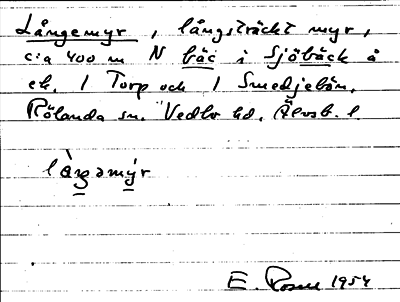 Långemyr, långsträckt myr,
c:a 400 m N bäc i Sjöbäck å
ek. 1 Torp och 1 Smedjebön.
Rölanda sn. Vedbo hd. Älvsb. l.
E. 1954